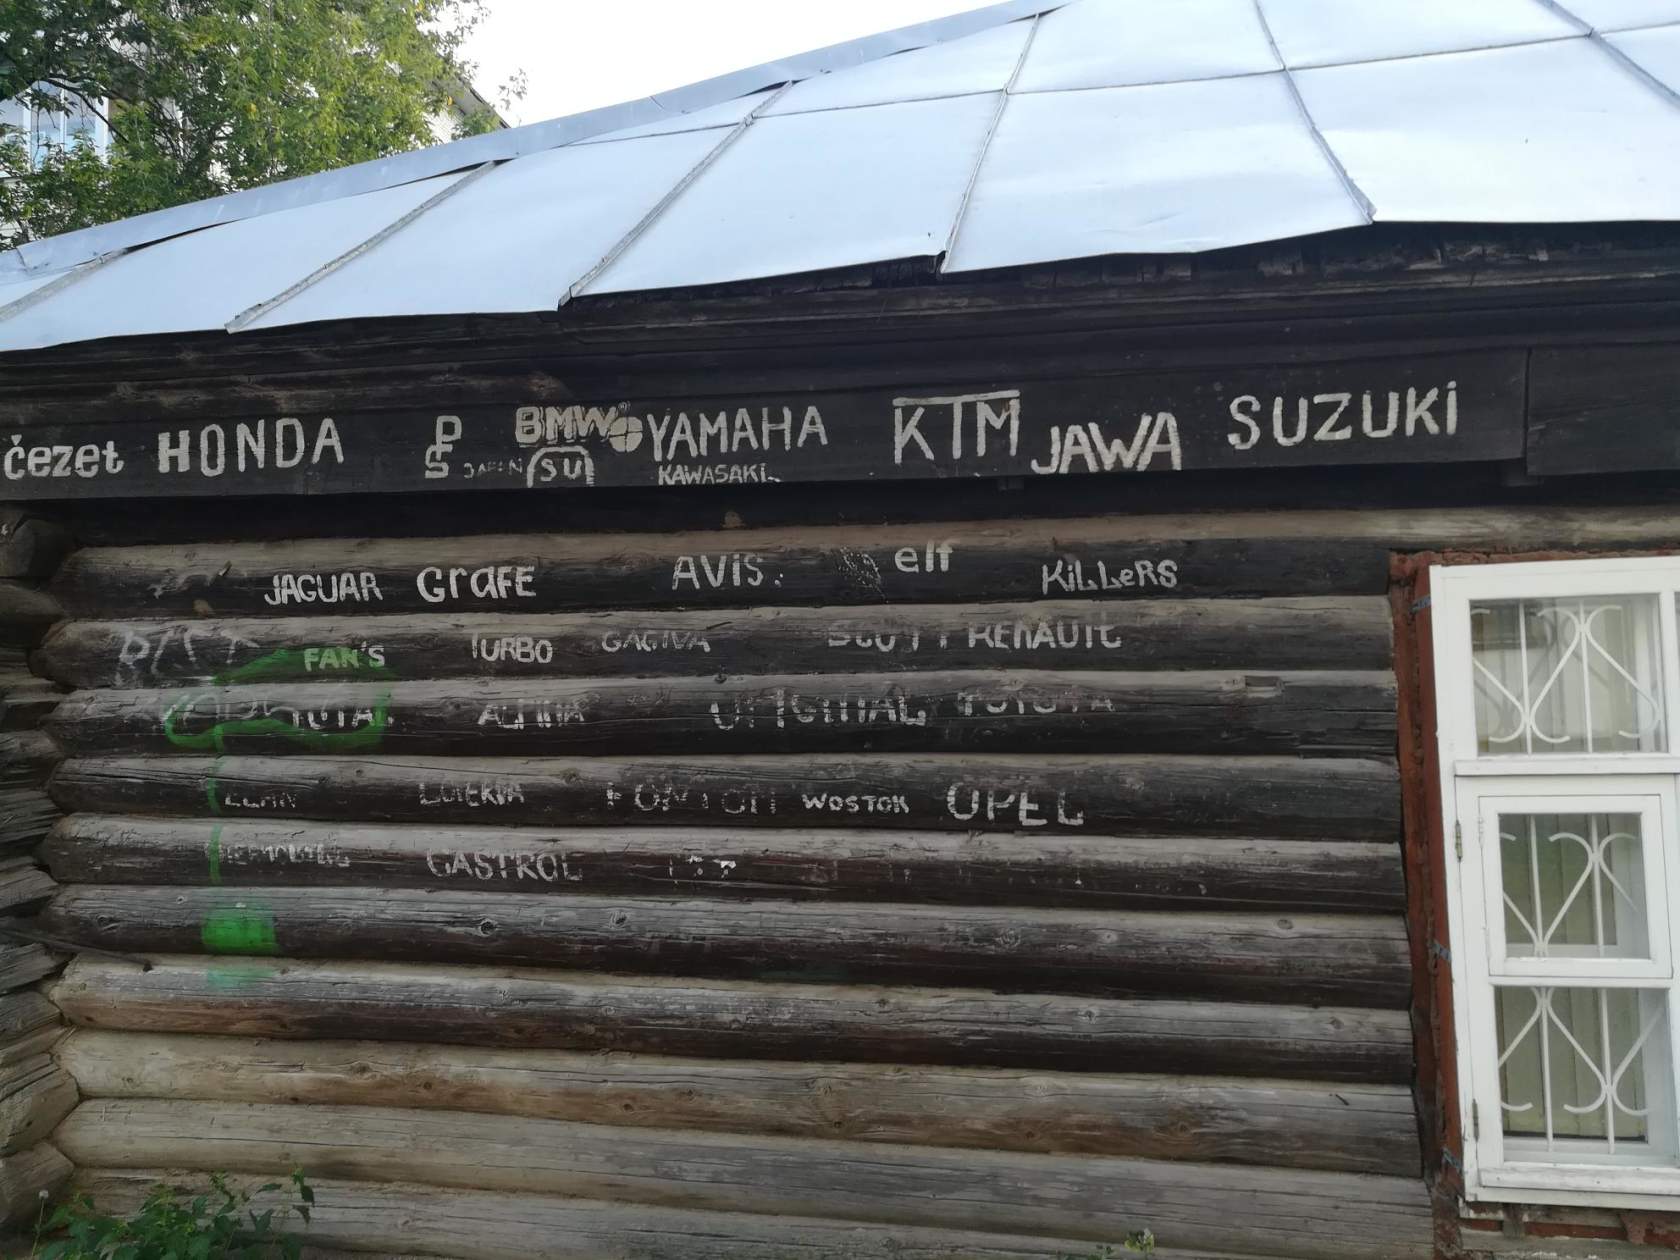 ćezet HONDA BMW YAMAHA KTM JAWA SUZUKi
SU KAWASAKi
JAGUAR GraFE AViS elf KiLLeRS
FAN'S TURBO CAGIVA SCOTT RENAULT
TOTAL ALPINA ORIGINAL TOYOTA
WOSTOK OPEL
CASTROL